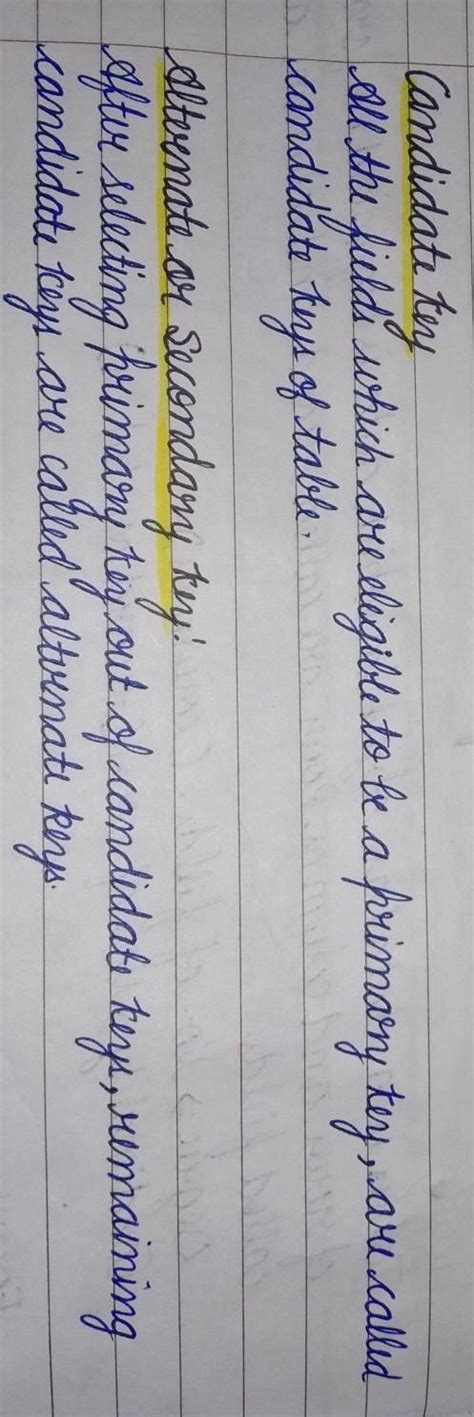 Candidate key
All the fields which are eligible to be a primary key, are called
candidate keys of table.
Alternate or Secondary key:
After selecting primary key out of candidate keys, remaining
candidate keys are called alternate keys.